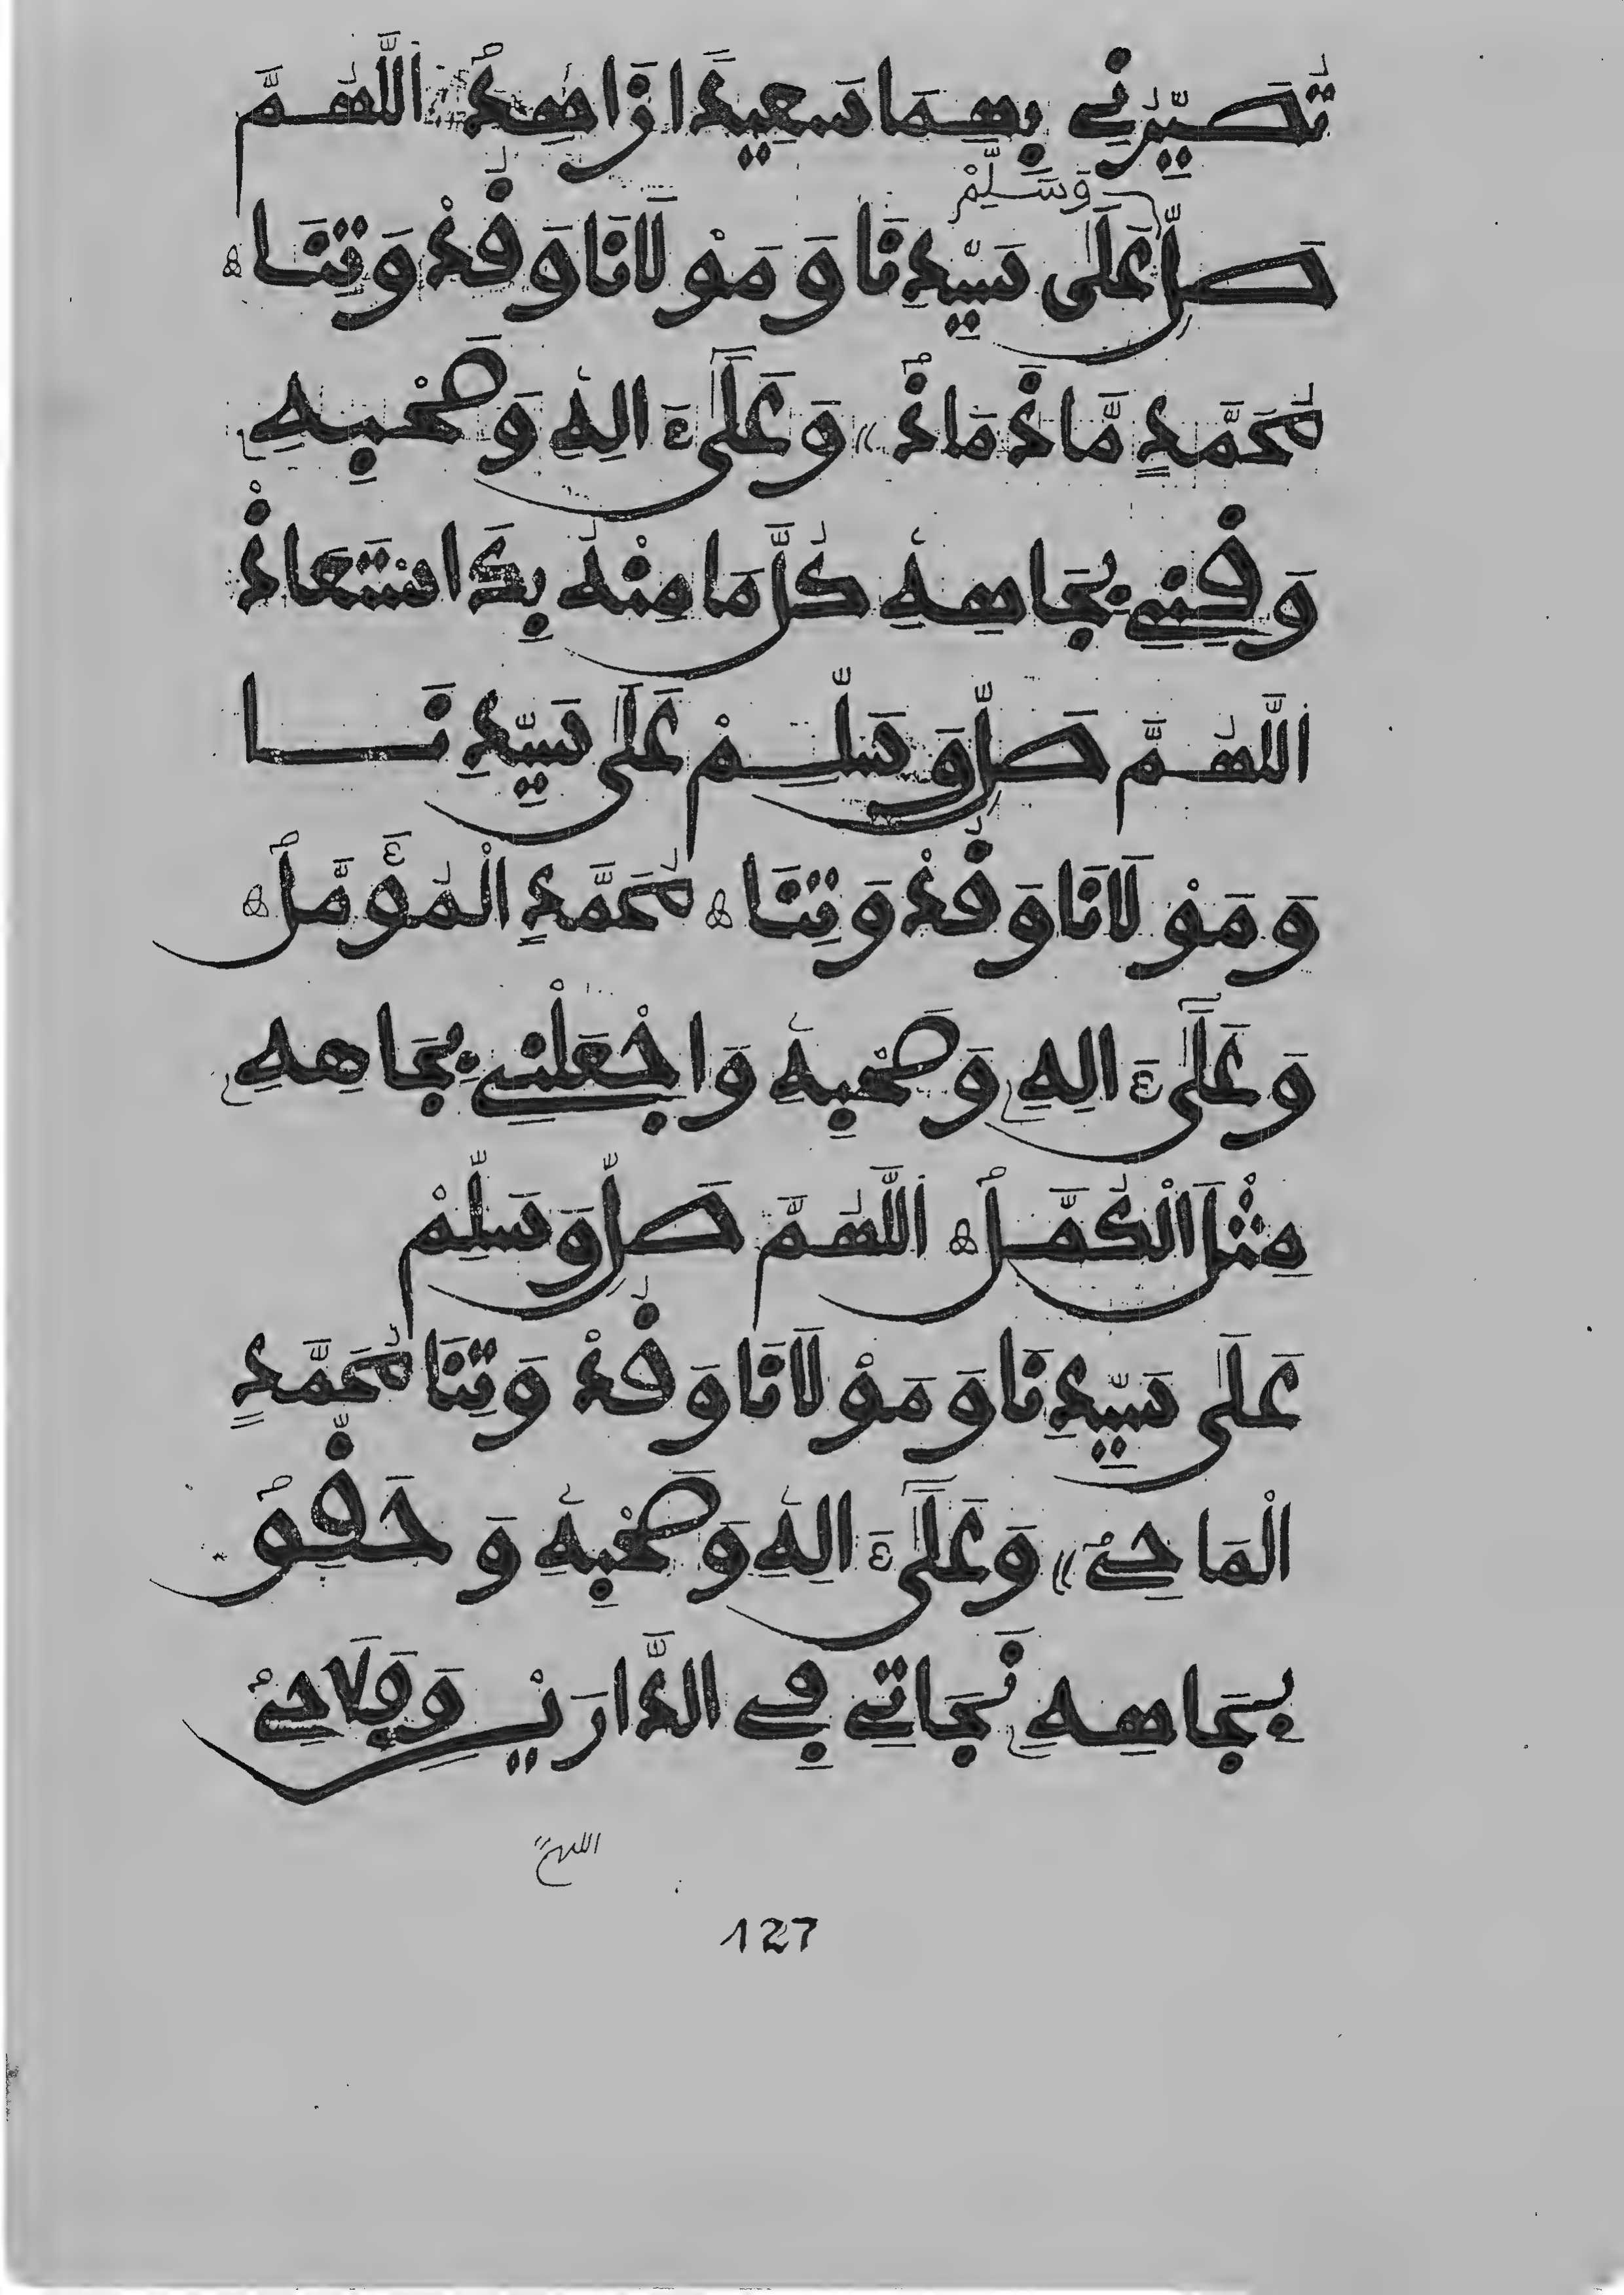 تُصَيِّرُنِي بِهِمَا سَعِيدًا زَاهِدًا اللَّهُمَّ
وَسَلِّمْ
صَلِّ عَلَى سَيِّدِنَا وَمَوْلَانَا وَقُدْوَتِنَا
مُحَمَّدٍ مَّاذْ مَاذْ وَعَلَىٰ ءَالِهِ وَصَحْبِهِ
وَقِنِي بِجَاهِهِ كُلَّ مَا مِنْهُ بِكَ اسْتَعَاذْ
اللَّهُمَّ صَلِّ وَسَلِّمْ عَلَى سَيِّدِنَا
وَمَوْلَانَا وَقُدْوَتِنَا مُحَمَّدٍ الْمُؤَمَّلُ
وَعَلَىٰ ءَالِهِ وَصَحْبِهِ وَاجْعَلْنِي بِجَاهِهِ
مِثْلَ الْكُمَّلُ اللَّهُمَّ صَلِّ وَسَلِّمْ
عَلَى سَيِّدِنَا وَمَوْلَانَا وَقُدْوَتِنَا مُحَمَّدٍ
الْمَاحِي وَعَلَىٰ ءَالِهِ وَصَحْبِهِ وَحَقِّقْ
بِجَاهِهِ نَجَاتِي فِي الدَّارَيْنِ وَفَلَاحِي
اللهم
127